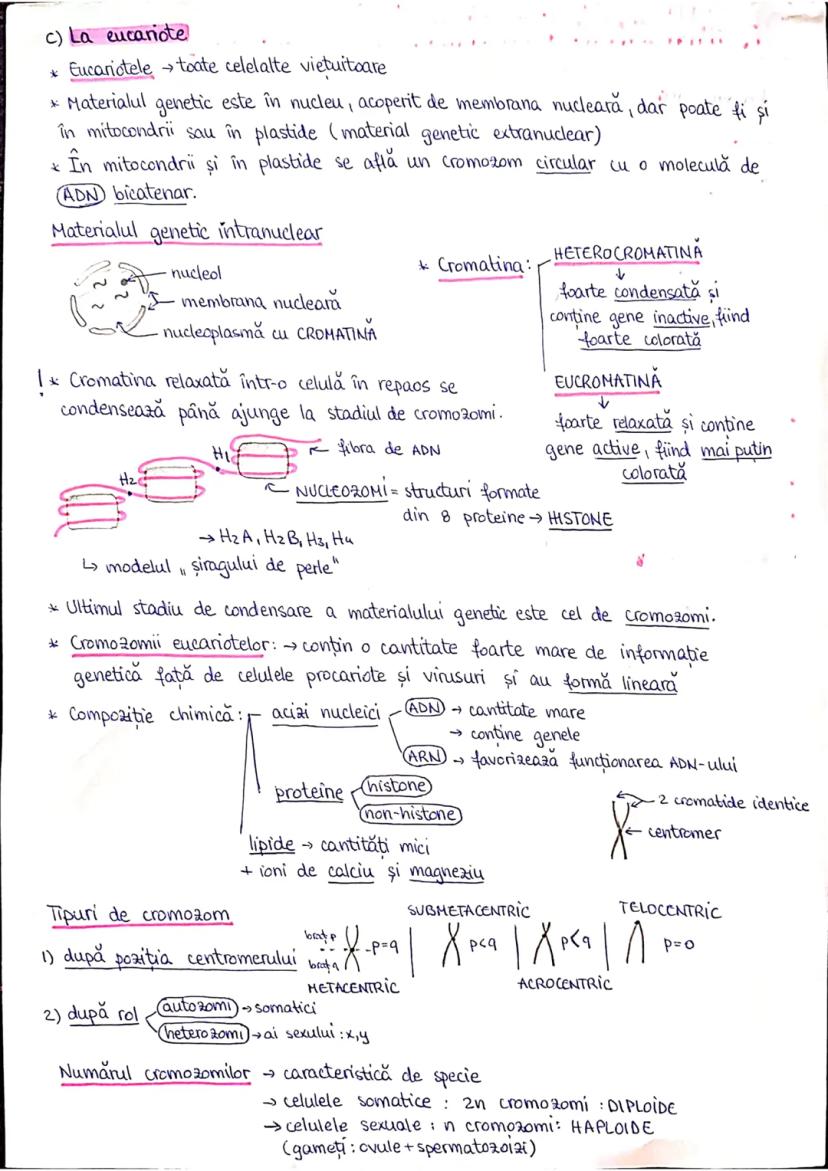 c) La eucariote
* Eucariotele → toate celelalte viețuitoare
* Materialul genetic este în nucleu, acoperit de membrana nucleară, dar poate fi și
în mitocondrii sau în plastide (material genetic extranuclear)
* În mitocondrii și în plastide se află un cromozom circular cu o moleculă de
ADN bicatenar.
Materialul genetic intranuclear
nucleol
membrana nucleară
nucleoplasmă cu CROMATINĂ
* Cromatina:
HETEROCROMATINĂ
↓
foarte condensată și
conține gene inactive, fiind
foarte colorată
EUCROMATINĂ
↓
foarte relaxată și conține
gene active, fiind mai puțin
colorată
! * Cromatina relaxată într-o celulă în repaos se
condensează până ajunge la stadiul de cromozomi.
H1
fibra de ADN
H2
NUCLEOZOMI = structuri formate
din 8 proteine → HISTONE
→ H2A, H2B, H3, H4
↳ modelul „șiragului de perle"
* Ultimul stadiu de condensare a materialului genetic este cel de cromozomi.
* Cromozomii eucariotelor: → conțin o cantitate foarte mare de informație
genetică față de celulele procariote și virusuri și au formă lineară
* Compoziție chimică: acizi nucleici ADN → cantitate mare
→ conține genele
ARN → favorizează funcționarea ADN-ului
proteine histone
non-histone
lipide → cantități mici
+ ioni de calciu și magneziu
2 cromatide identice
centromer
Tipuri de cromozom
1) după poziția centromerului
braț p
braț q
p=q
METACENTRIC
SUBMETACENTRIC
p<q
p<q
ACROCENTRIC
TELOCENTRIC
p=0
2) după rol autozomi → somatici
heterozomi → ai sexului: x,y
Numărul cromozomilor → caracteristică de specie
→ celulele somatice : 2n cromozomi : DIPLOIDE
→ celulele sexuale : n cromozomi: HAPLOIDE
(gameți: ovule + spermatozoizi)